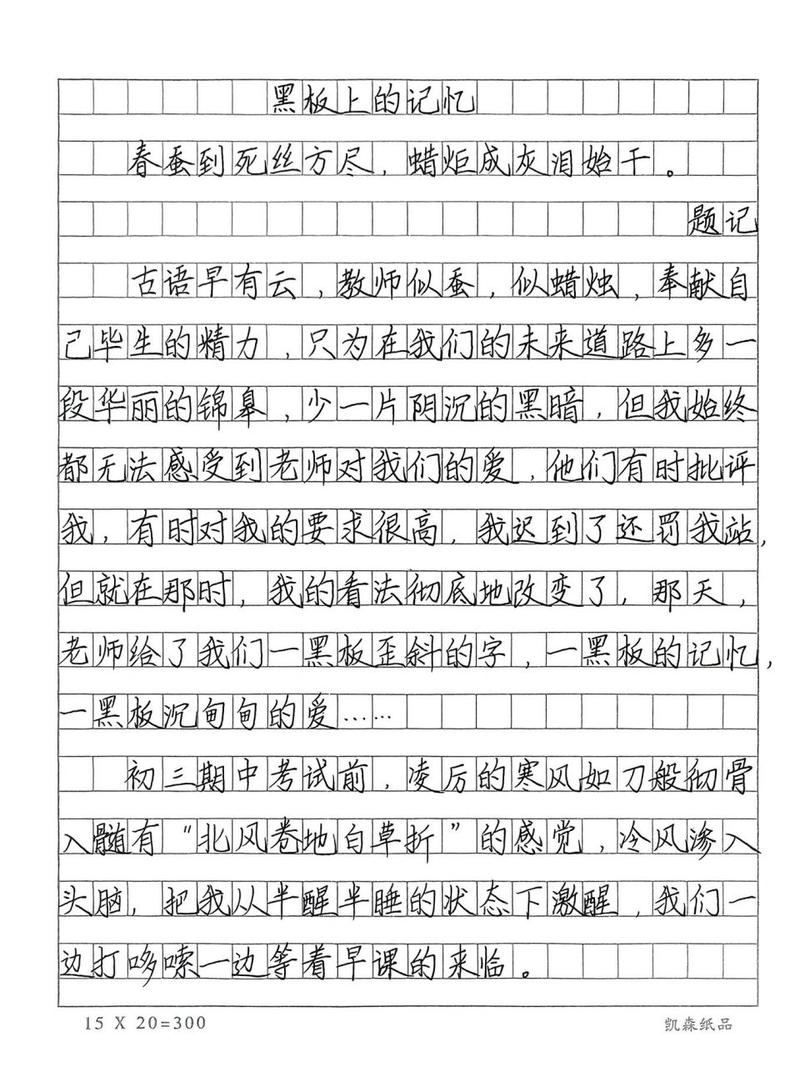 黑板上的记忆
春蚕到死丝方尽，蜡炬成灰泪始干。
题记
古语早有云，教师似蚕，似蜡烛，奉献自
己毕生的精力，只为在我们的未来道路上多一
段华丽的锦皋，少一片阴沉的黑暗，但我始终
都无法感受到老师对我们的爱，他们有时批评
我，有时对我的要求很高，我迟到了还罚我站，
但就在那时，我的看法彻底地改变了，那天，
老师给了我们一黑板歪斜的字，一黑板的记忆，
一黑板沉甸甸的爱……
初三期中考试前，凌厉的寒风如刀般彻骨
入髓有“北风卷地白草折”的感觉，冷风渗入
头脑，把我从半醒半睡的状态下激醒，我们一
边打哆嗦一边等着早课的来临。
15 X 20=300
凯森纸品